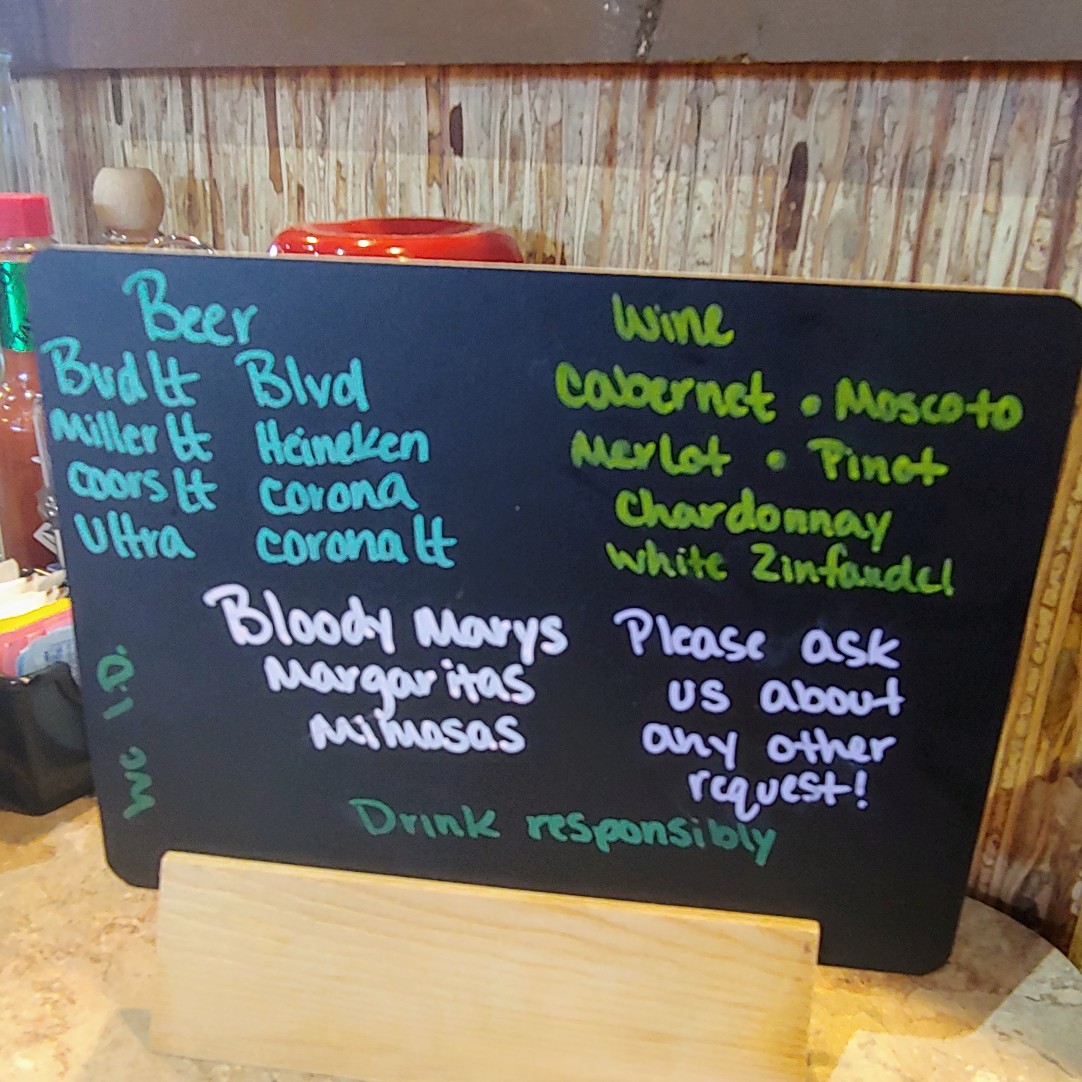 Beer
Bud Lt Blvd
Miller Lt Heineken
Coors Lt Corona
Ultra Corona Lt
Wine
Cabernet • Moscato
Merlot • Pinot
Chardonnay
White Zinfandel
Bloody Marys
Margaritas
Mimosas
Please ask
us about
any other
request!
We I.D.
Drink responsibly